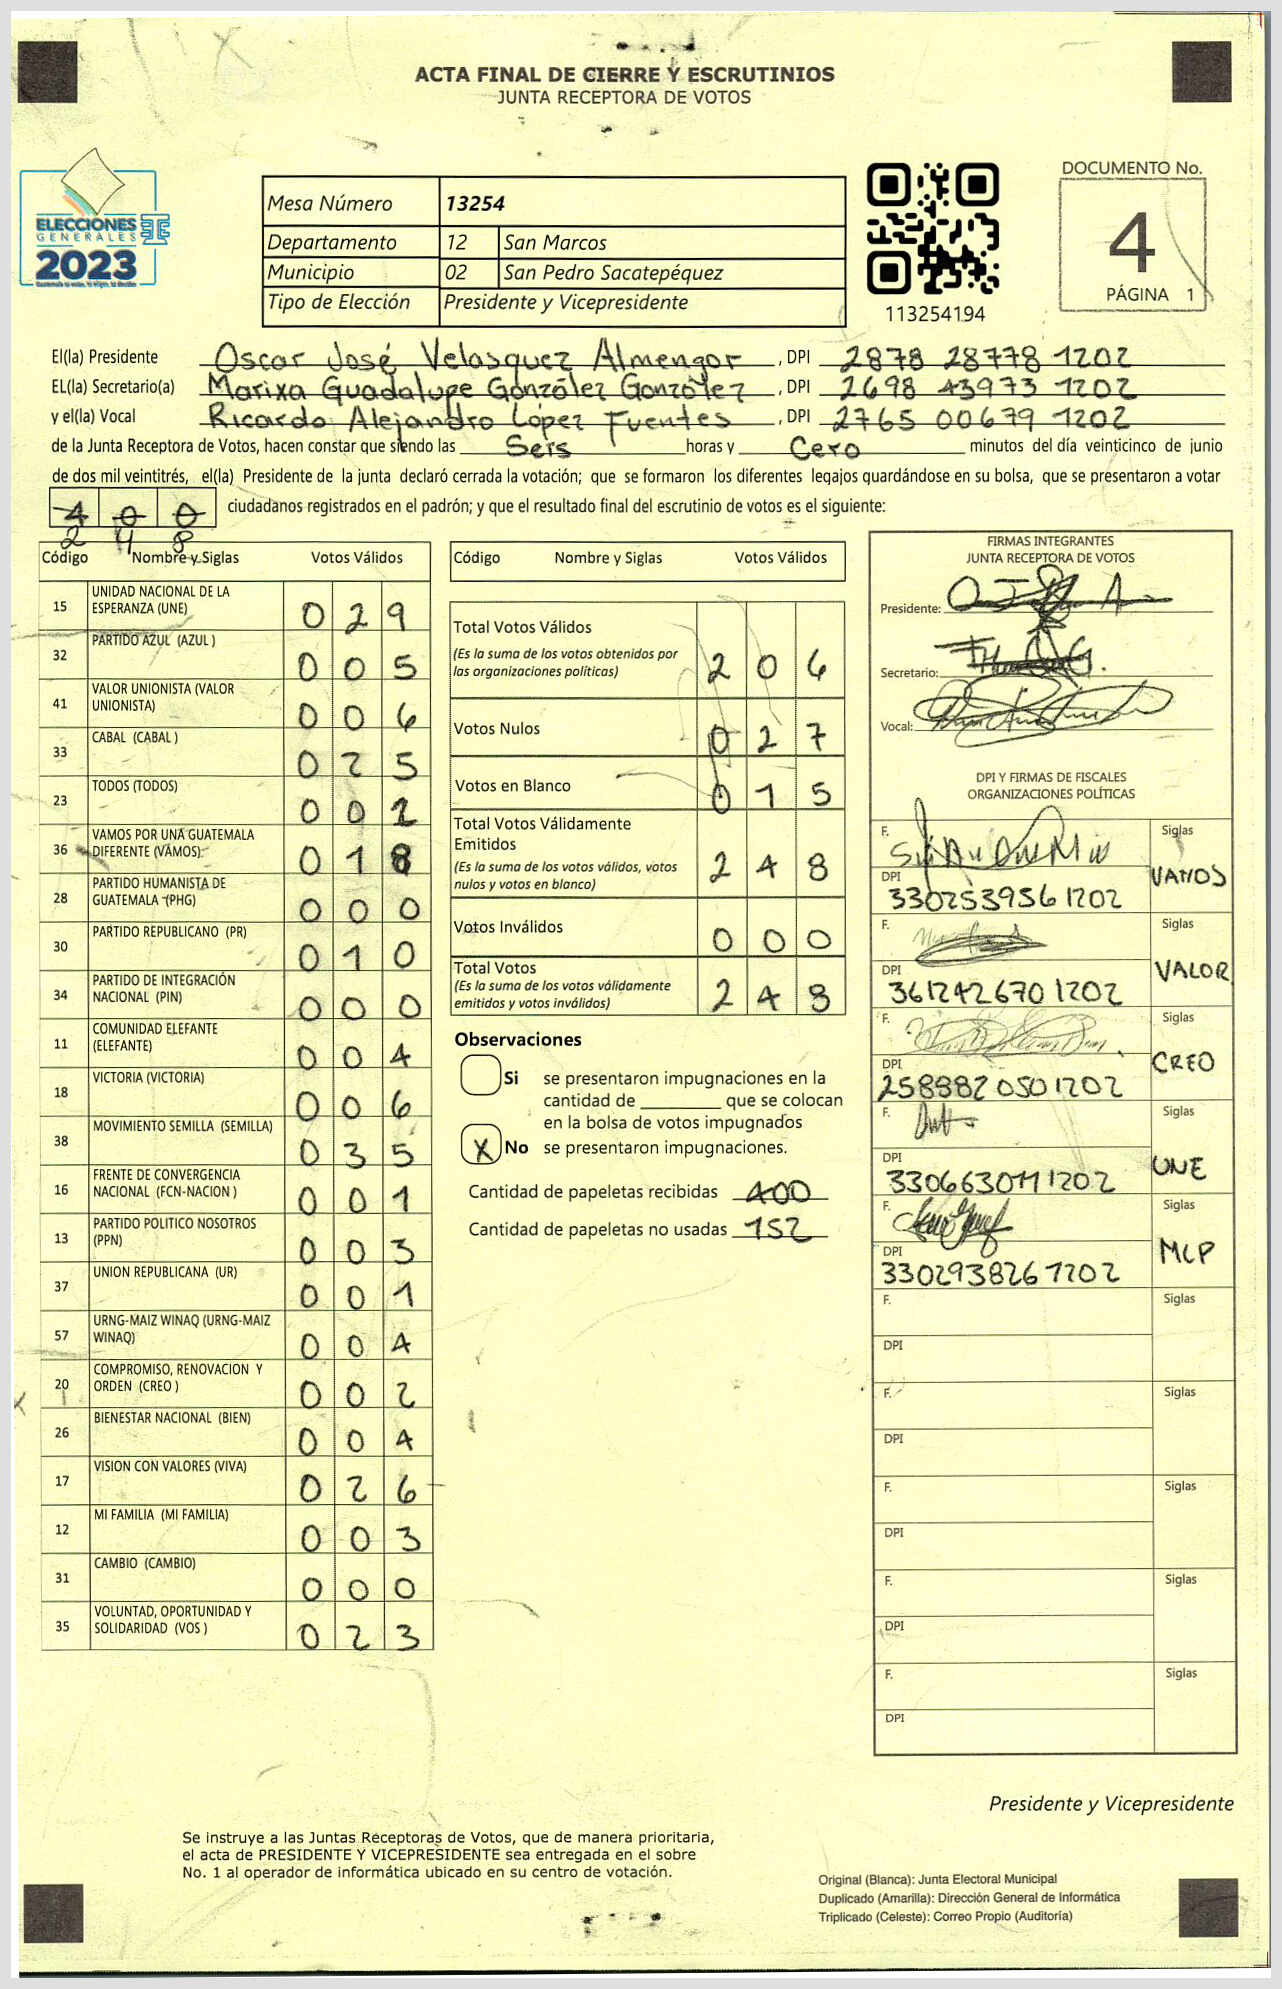 ACTA FINAL DE CIERRE Y ESCRUTINIOS
JUNTA RECEPTORA DE VOTOS
ELECCIONES
GENERALES
2023
Mesa Número 13254
Departamento 12 San Marcos
Municipio 02 San Pedro Sacatepéquez
Tipo de Elección Presidente y Vicepresidente
113254194
DOCUMENTO No.
4
PÁGINA 1
El(la) Presidente Oscar José Velasquez Almengor, DPI 2878 28778 1202
EL(la) Secretario(a) Marixa Guadalupe González González, DPI 2698 43973 1202
y el(la) Vocal Ricardo Alejandro López Fuentes, DPI 2765 00679 1202
de la Junta Receptora de Votos, hacen constar que siendo las Seis horas y Cero minutos del día veinticinco de junio
de dos mil veintitrés, el(la) Presidente de la junta declaró cerrada la votación; que se formaron los diferentes legajos guardándose en su bolsa, que se presentaron a votar
4 0 0 ciudadanos registrados en el padrón; y que el resultado final del escrutinio de votos es el siguiente:
2 4 8
Código Nombre y Siglas Votos Válidos
15 UNIDAD NACIONAL DE LA ESPERANZA (UNE) 0 2 9
32 PARTIDO AZUL (AZUL ) 0 0 5
41 VALOR UNIONISTA (VALOR UNIONISTA) 0 0 6
33 CABAL (CABAL ) 0 2 5
23 TODOS (TODOS) 0 0 1
36 VAMOS POR UNA GUATEMALA DIFERENTE (VAMOS) 0 1 8
28 PARTIDO HUMANISTA DE GUATEMALA (PHG) 0 0 0
30 PARTIDO REPUBLICANO (PR) 0 1 0
34 PARTIDO DE INTEGRACIÓN NACIONAL (PIN) 0 0 0
11 COMUNIDAD ELEFANTE (ELEFANTE) 0 0 4
18 VICTORIA (VICTORIA) 0 0 6
38 MOVIMIENTO SEMILLA (SEMILLA) 0 3 5
16 FRENTE DE CONVERGENCIA NACIONAL (FCN-NACION ) 0 0 1
13 PARTIDO POLITICO NOSOTROS (PPN) 0 0 3
37 UNION REPUBLICANA (UR) 0 0 1
57 URNG-MAIZ WINAQ (URNG-MAIZ WINAQ) 0 0 4
20 COMPROMISO, RENOVACION Y ORDEN (CREO ) 0 0 2
26 BIENESTAR NACIONAL (BIEN) 0 0 4
17 VISION CON VALORES (VIVA) 0 2 6
12 MI FAMILIA (MI FAMILIA) 0 0 3
31 CAMBIO (CAMBIO) 0 0 0
35 VOLUNTAD, OPORTUNIDAD Y SOLIDARIDAD (VOS ) 0 2 3
Código Nombre y Siglas Votos Válidos
Total Votos Válidos 2 0 6
(Es la suma de los votos obtenidos por
las organizaciones políticas)
Votos Nulos 0 2 7
Votos en Blanco 0 1 5
Total Votos Válidamente
Emitidos 2 4 8
(Es la suma de los votos válidos, votos
nulos y votos en blanco)
Votos Inválidos 0 0 0
Total Votos 2 4 8
(Es la suma de los votos válidamente
emitidos y votos inválidos)
Observaciones
Si se presentaron impugnaciones en la
cantidad de ________ que se colocan
en la bolsa de votos impugnados
X No se presentaron impugnaciones.
Cantidad de papeletas recibidas 400
Cantidad de papeletas no usadas 152
FIRMAS INTEGRANTES
JUNTA RECEPTORA DE VOTOS
Presidente:
Secretario:
Vocal:
DPI Y FIRMAS DE FISCALES
ORGANIZACIONES POLÍTICAS
F. Siglas VAMOS
DPI 3302539561202
F. Siglas VALOR
DPI 3612426701202
F. Siglas CREO
DPI 2589820501202
F. Siglas UNE
DPI 3306630111202
F. Siglas MLP
DPI 3302938261202
F. Siglas
DPI
F. Siglas
DPI
F. Siglas
DPI
F. Siglas
DPI
F. Siglas
DPI
Presidente y Vicepresidente
Se instruye a las Juntas Receptoras de Votos, que de manera prioritaria,
el acta de PRESIDENTE Y VICEPRESIDENTE sea entregada en el sobre
No. 1 al operador de informática ubicado en su centro de votación.
Original (Blanca): Junta Electoral Municipal
Duplicado (Amarilla): Dirección General de Informática
Triplicado (Celeste): Correo Propio (Auditoría)